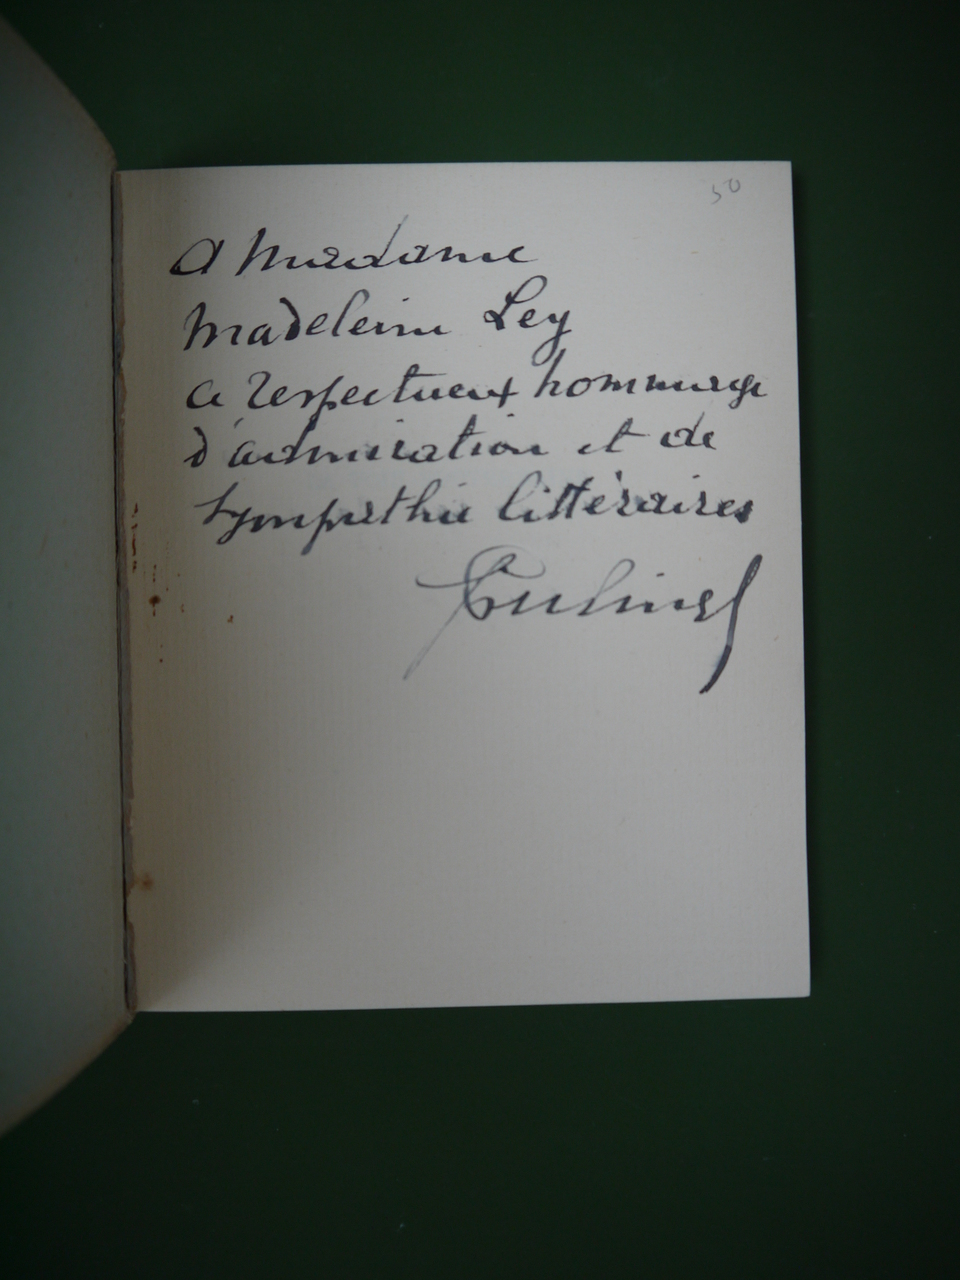 50
A Madame
Madeleine Ley
ce respectueux hommage
d'admiration et de
sympathie littéraires